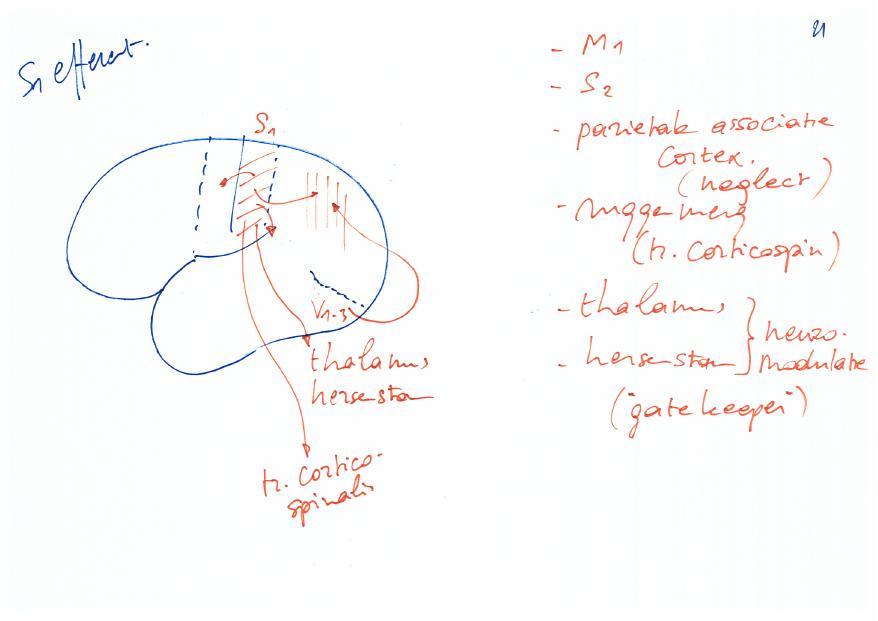 S1 efferent.
21
S1
V1-3
thalamus
hersenstam
tr. cortico-
spinalis
- M1
- S2
- parietale associatie
cortex.
(neglect)
- ruggemerg
(tr. corticospin)
- thalamus
- hersenstam
neuro-
modulatie
("gate keeper")